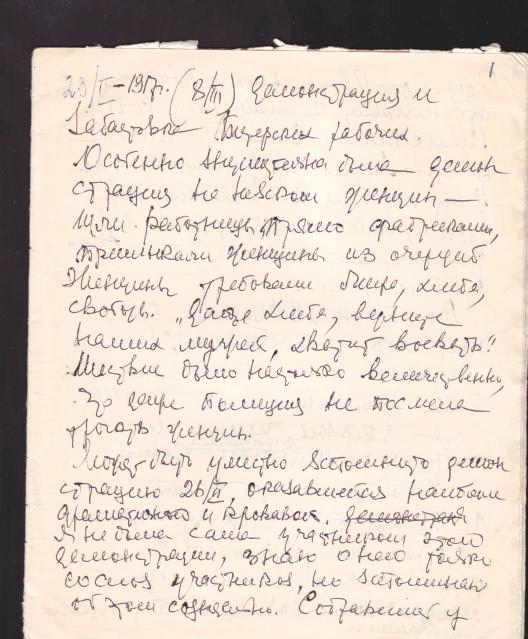 1
23/II-1917г. (8/III) демонстрация и
забастовка Питерских рабочих.
Особенно внушительна была демон
страция на Невском женщин —
шли работницы прямо фабриками,
примыкали женщины из очередей.
Женщины требовали мира, хлеба,
свободы. „Дайте хлеба, верните
наших мужей, хватит воевать!"
Шествие было настолько величественно,
что даже полиция не посмела
трогать женщин.
Может быть уместно вспомнить демон
страцию 26/II, оказавшейся наиболее
драматичной и кровавой. демонстрация
Я не была сама участником этой
демонстрации, знаю о ней только
со слов участников, но вспоминаю
об этом